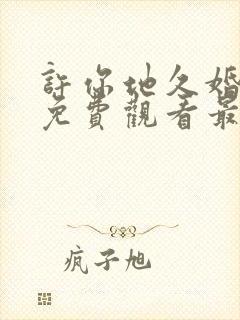 許你地久婚
免費觀看最
疯子旭